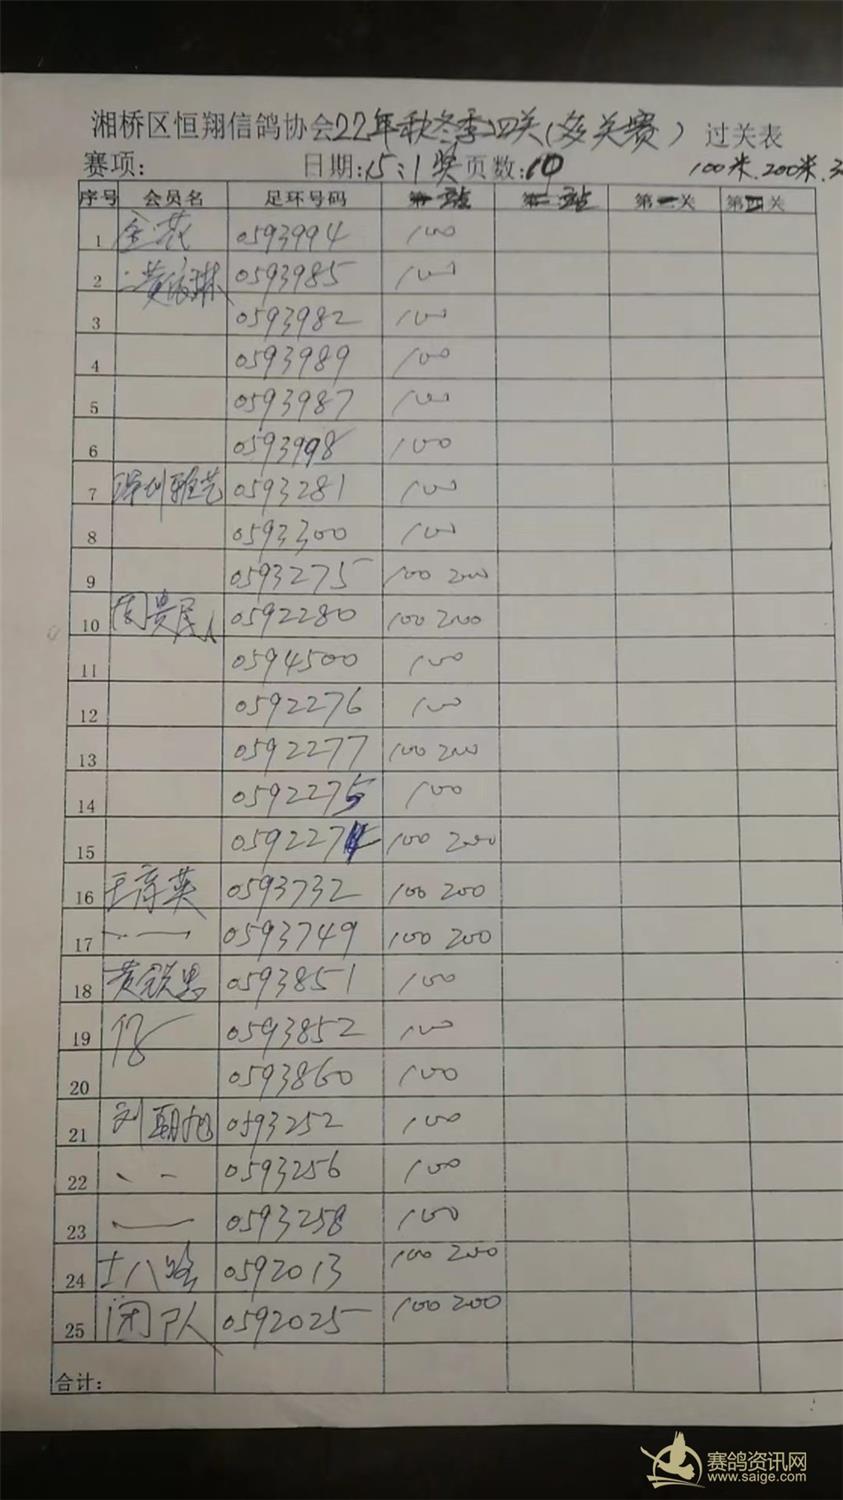 湘桥区恒翔信鸽协会22年秋冬季四关(多关赛) 过关表
赛项: 日期:15:1奖 页数:10 100米.200米.30
序号 会员名 足环号码 第一站 第二站 第三关 第四关
1 金花 0593994 100
2 0593985 100
3 0593982 100
4 0593989 100
5 0593987 100
6 0593998 100
7 深圳雅艺 0593281 100
8 0593300 100
9 0593275 100 200
10 0592280 100 200
11 0594500 100
12 0592276 100
13 0592277 100 200
14 0592275 100
15 0592274 100 200
16 0593732 100 200
17 0593749 100 200
18 0593851 100
19 0593852 100
20 0593860 100
21 刘朝旭 0593252 100
22 0593256 100
23 0593258 100
24 十八路 0592013 100 200
25 团队 0592025 100 200
合计:
赛鸽资讯网
www.saige.com